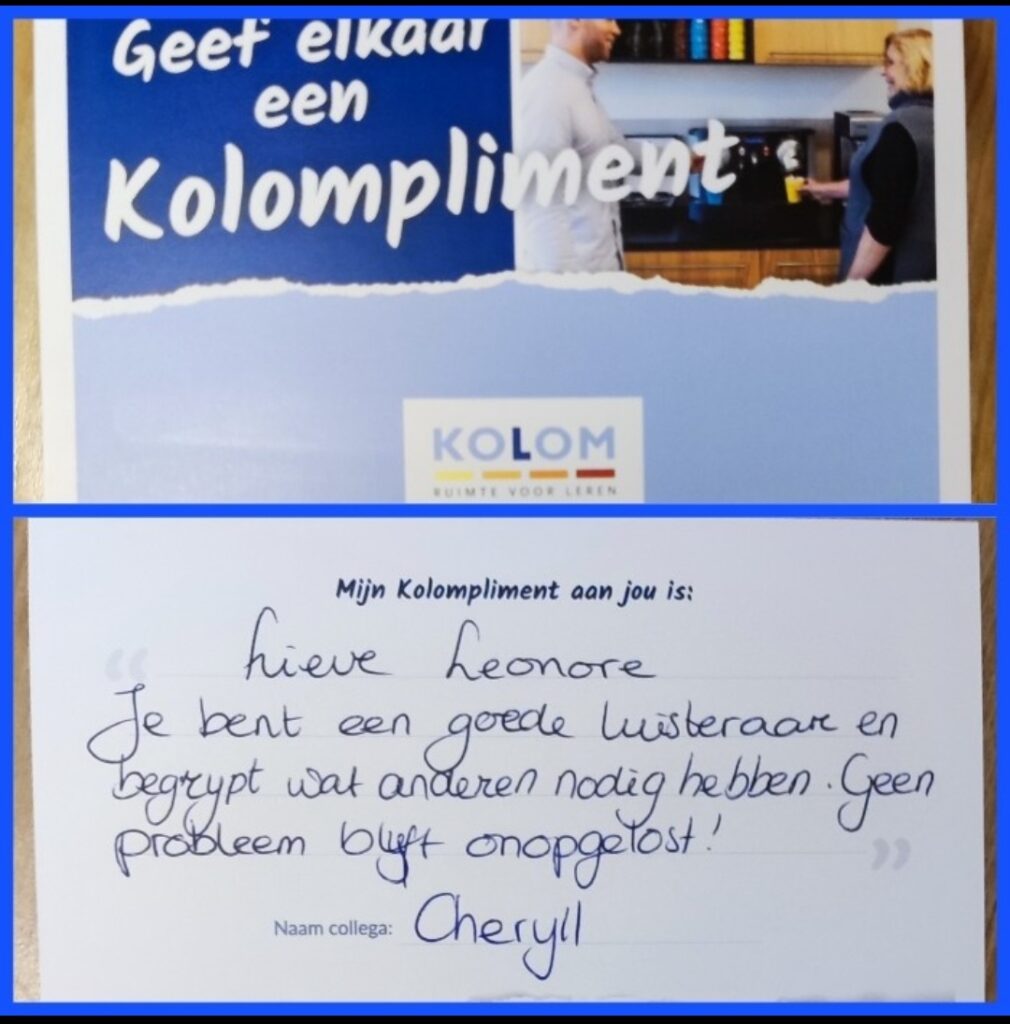 Geef elkaar
een
Kolompliment
KOLOM
RUIMTE VOOR LEREN
Mijn Kolompliment aan jou is:
“
Lieve Leonore
Je bent een goede luisteraar en
begrypt wat anderen nodig hebben. Geen
probleem blyft onopgelost!
”
Naam collega: Cheryll